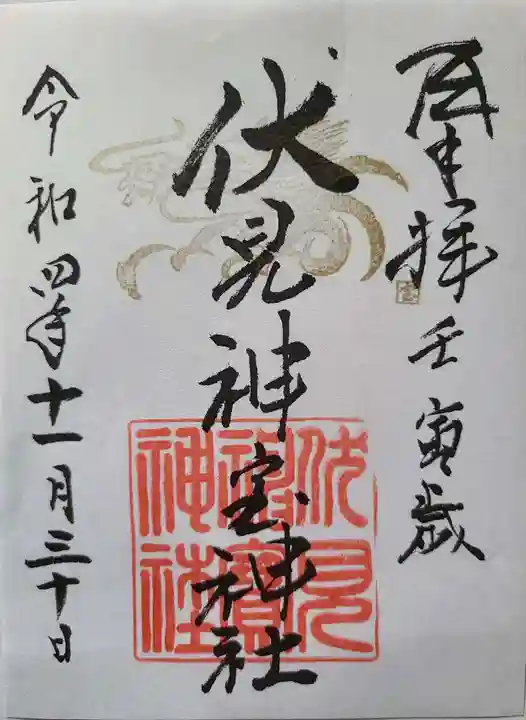 奉拝 壬寅歳
伏見神宝神社
伏見
神寶
神社
令和四年十一月三十日